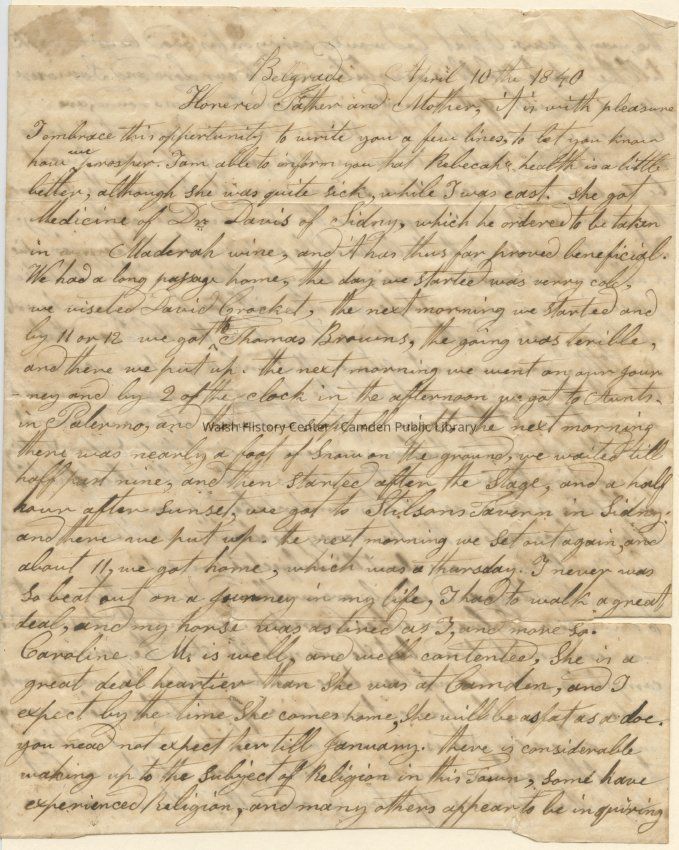 Belgrade April 10th 1840
Honered Father and Mother, it is with pleasure
I embrace this opportunity to write you a few lines, to let you know
how we prosper. I am able to inform you that Rebecah's health is a little
better, although she was quite sick, while I was east. she got
Medicine of Dr Davis of Sidny, which he ordered to be taken
in Maderah wine, and it has thus far proved beneficial.
We had a long passage home, the day we started was verry cold,
we viseted David Crocket, the next morning we started and
by 11 or 12 we got to Thomas Browns, the going was terible,
and there we put up. the next morning we went on our jour
-ney and by 2 of the clock in the afternoon we got to Aunts
in Palermo, and the next morning
Walsh History Center - Camden Public Library
there was nearly a foot of Snow on the ground, we waited till
half past nine, and then started after the Stage, and a half
hour after sunset, we got to Stilsons Tavern in Sidny,
and there we put up. the next morning we set out again, and
about 11, we got home, which was a thursday. I never was
so beat out on a journey in my life, I had to walk a great
deal, and my horse was as tired as I, and more so.
Caroline M. is well, and well contented, She is a
great deal heartier than she was at Camden, and I
expect by the time she comes home, she will be as fat as a doe.
you nead not expect her till January. there is considerable
waking up to the subject of Religion in this Town, some have
experienced Religion, and many others appear to be inquiring